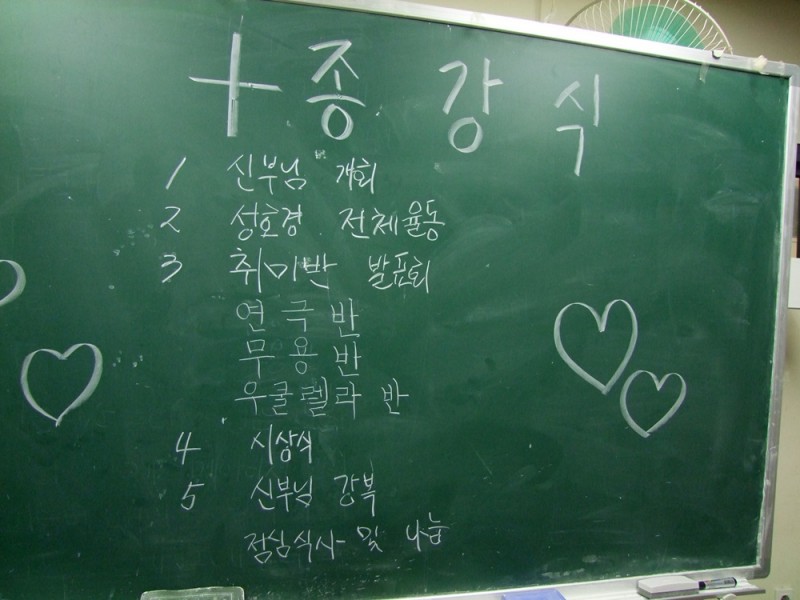 종 강 식
1 신부님 개회
2 성호경 전체율동
3 취미반 발표회
연극반
무용반
우쿨렐라 반
4 시상식
5 신부님 강복
점심식사 및 나눔